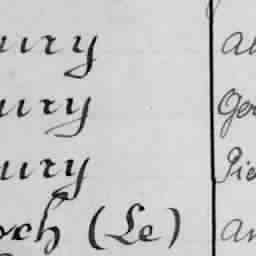 ury al
ury Ger
ury Pie
och (Le) an